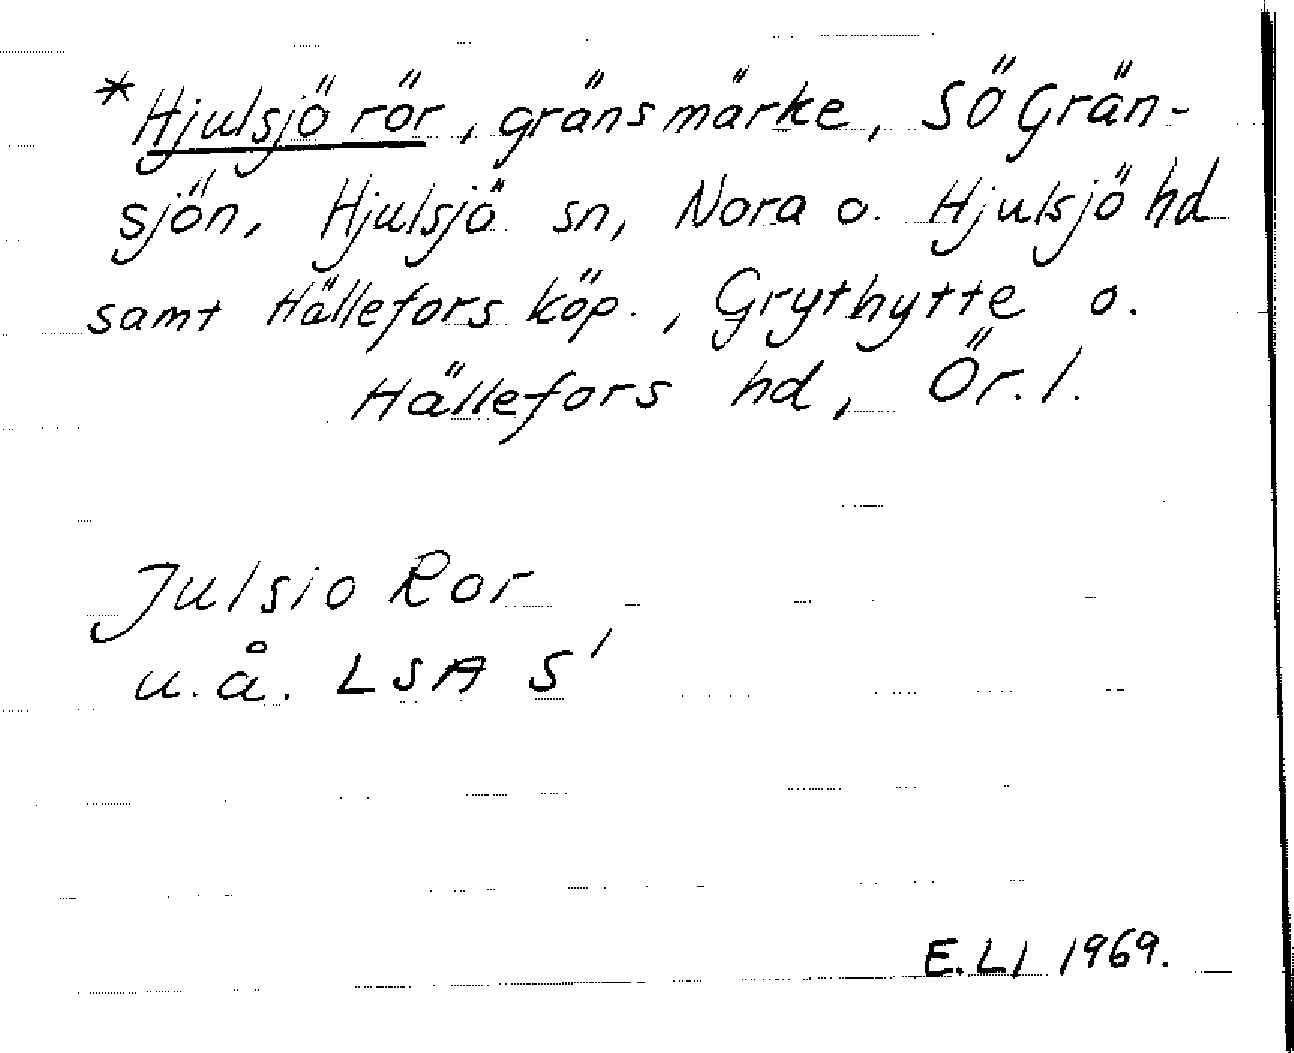 *Hjulsjö rör, gränsmärke, SÖ Grän-
sjön, Hjulsjö sn, Nora o. Hjulsjö hd
samt Hällefors köp., Grythytte o.
Hällefors hd, Ör. l.
Julsio Ror
u.å. LSA S'
E.Lj 1969.